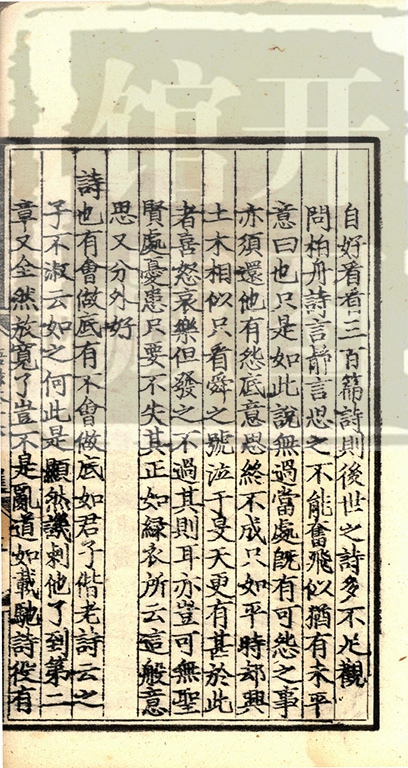 自好看看三百篇詩則後世之詩多不足觀
問柏舟詩言靜言思之不能奮飛似猶有未平
意曰也只是如此說無過當處旣有可怨之事
亦須還他有怨底意思終不成只如平時却與
土木相似只看舜之號泣于旻天更有甚於此
者喜怒哀樂但發之不過其則耳亦豈可無聖
賢處憂患只要不失其正如綠衣所云這般意
思又分外好
詩也有會做底有不會做底如君子偕老詩云之
子不淑云如之何此是顯然譏刺他了到第二
章又全然放寬了豈不是亂道如載馳詩煞有